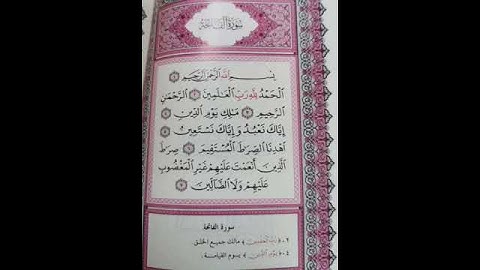 سُورَةُ الفَاتِحَةِ
بِسْمِ ٱللَّهِ ٱلرَّحْمَٰنِ ٱلرَّحِيمِ ١
ٱلْحَمْدُ لِلَّهِ رَبِّ ٱلْعَٰلَمِينَ ٢ ٱلرَّحْمَٰنِ
ٱلرَّحِيمِ ٣ مَٰلِكِ يَوْمِ ٱلدِّينِ ٤
إِيَّاكَ نَعْبُدُ وَإِيَّاكَ نَسْتَعِينُ ٥
ٱهْدِنَا ٱلصِّرَٰطَ ٱلْمُسْتَقِيمَ ٦ صِرَٰطَ
ٱلَّذِينَ أَنْعَمْتَ عَلَيْهِمْ غَيْرِ ٱلْمَغْضُوبِ
عَلَيْهِمْ وَلَا ٱلضَّآلِّينَ ٧
سورة الفاتحة
٢ - ﴿رب العالمين﴾ مالك جميع الخلق
٤ - ﴿يوم الدين﴾ يوم القيامة.